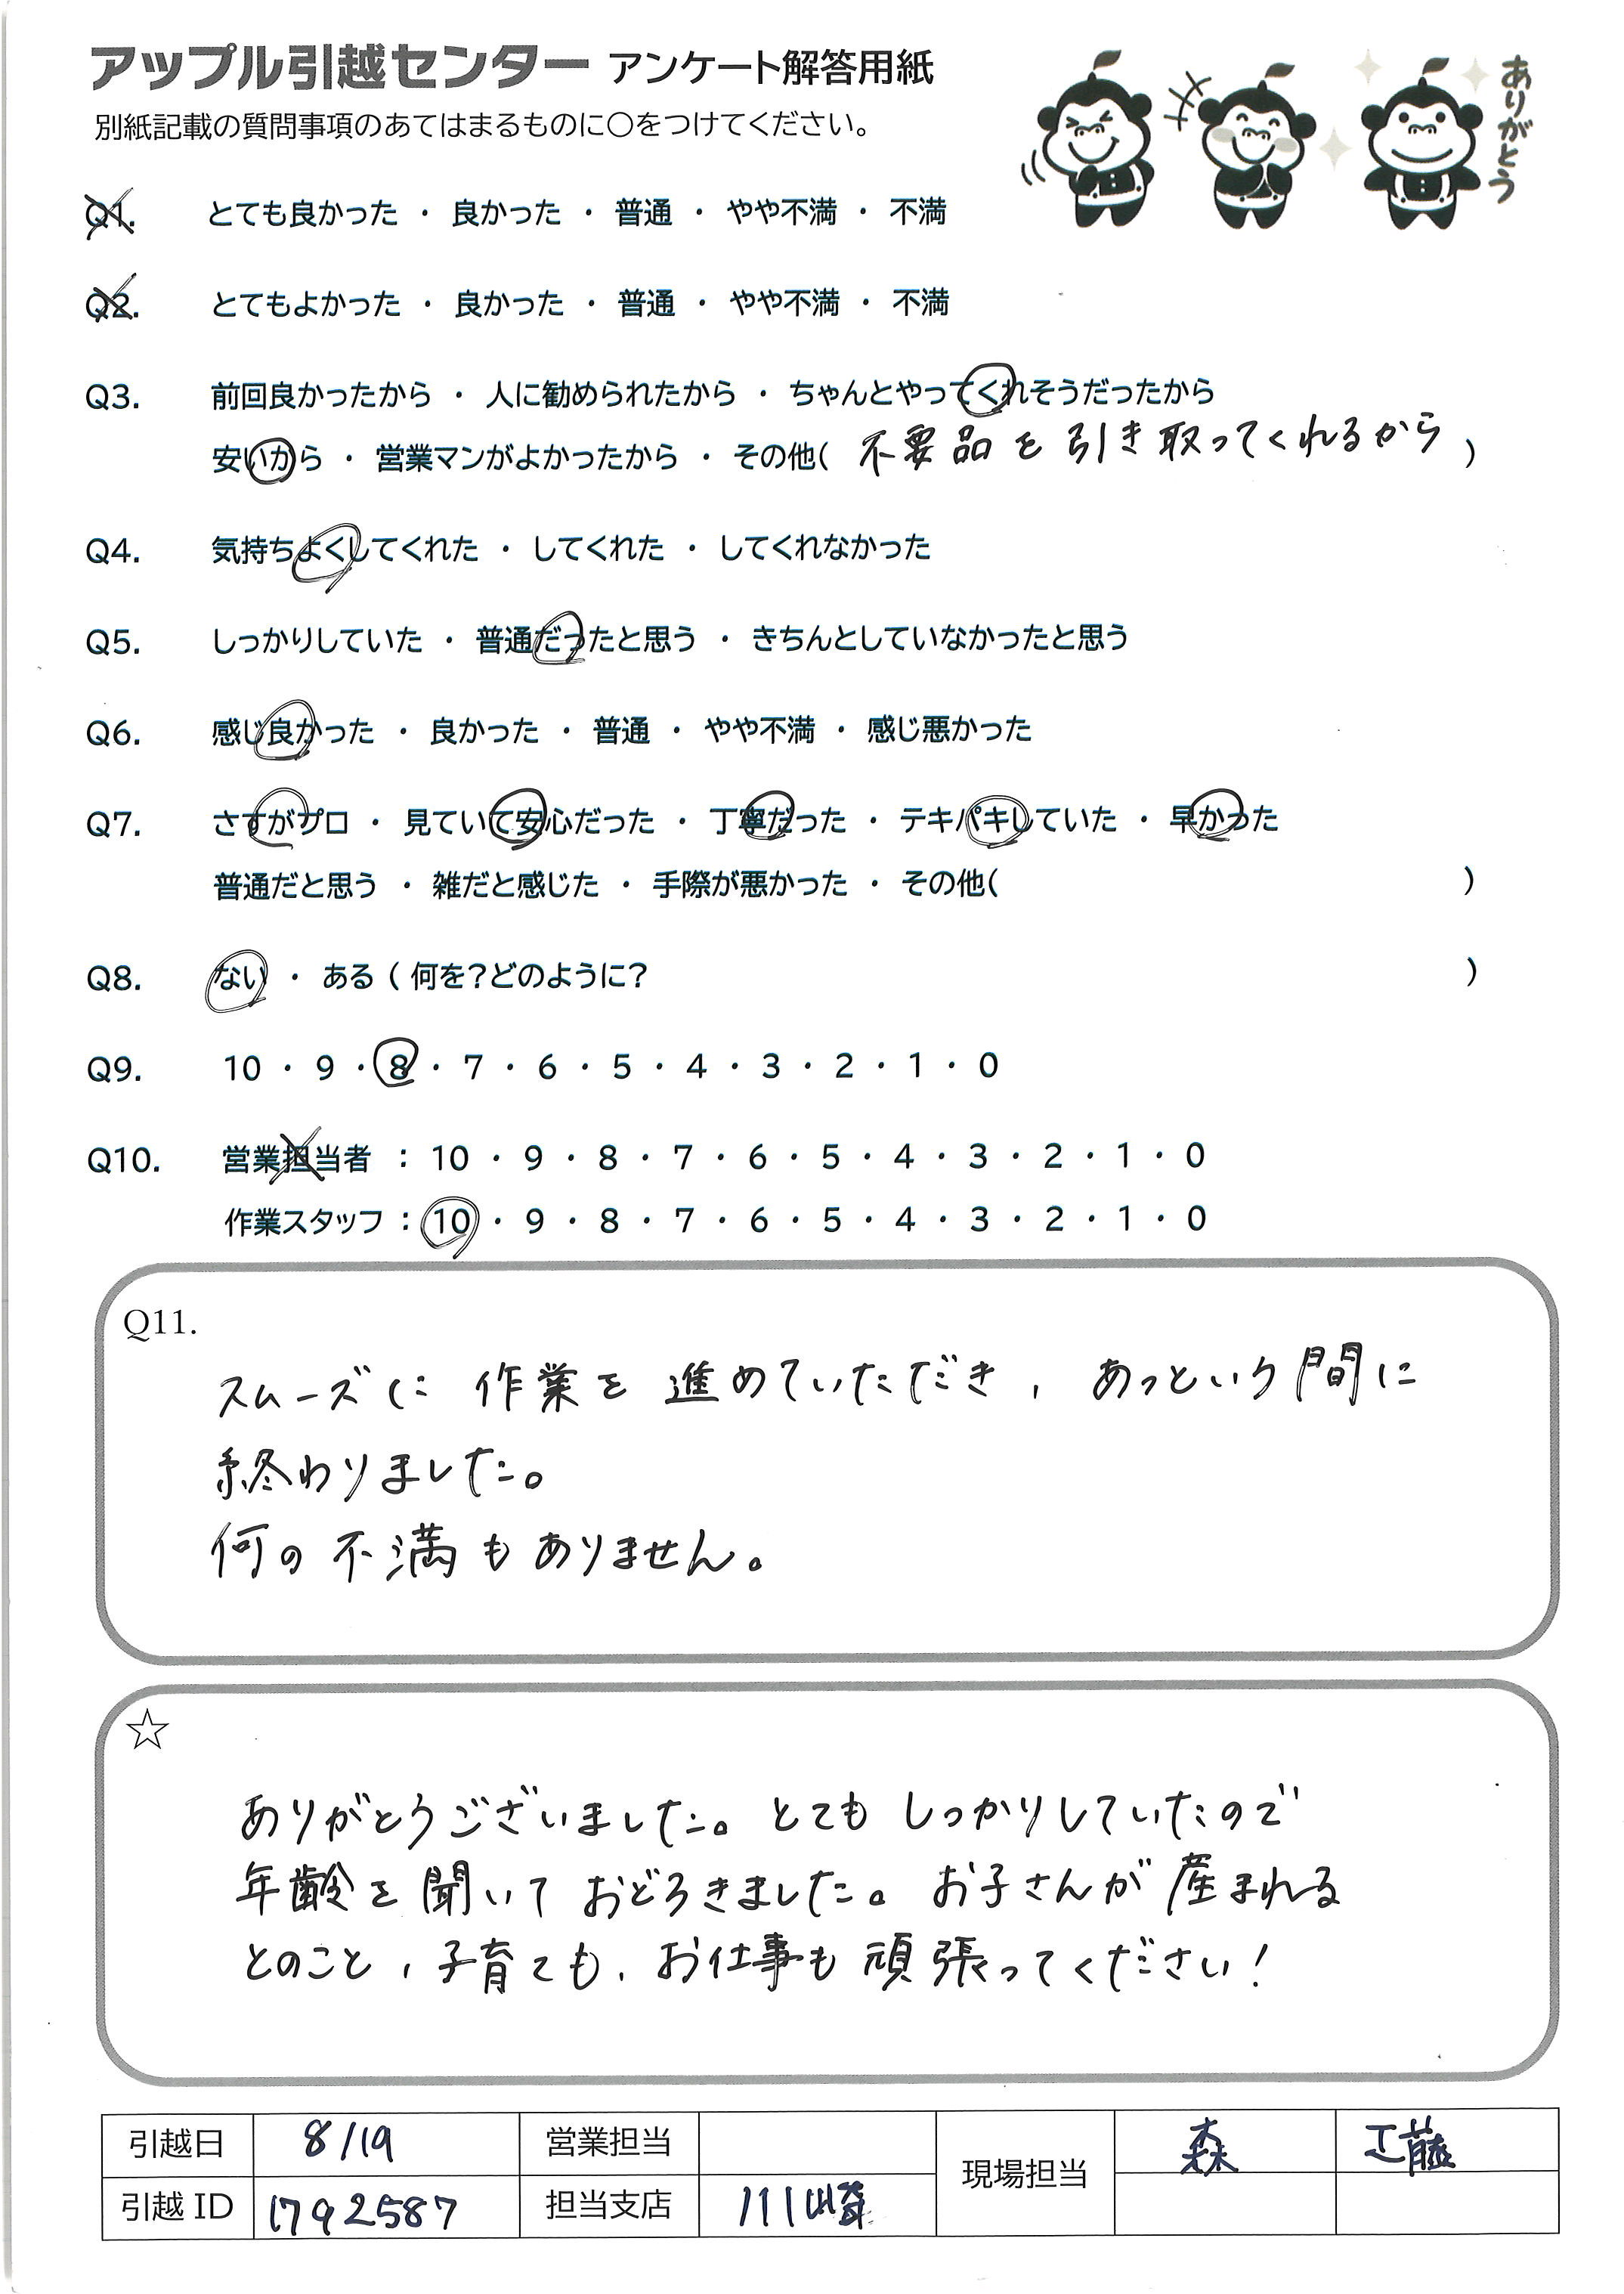 アップル引越センター アンケート解答用紙
別紙記載の質問事項のあてはまるものに○をつけてください。
ありがとう
Q1. とても良かった ・ 良かった ・ 普通 ・ やや不満 ・ 不満
Q2. とてもよかった ・ 良かった ・ 普通 ・ やや不満 ・ 不満
Q3. 前回良かったから ・ 人に勧められたから ・ ちゃんとやってくれそうだったから
安いから ・ 営業マンがよかったから ・ その他( 不要品を引き取ってくれるから )
Q4. 気持ちよくしてくれた ・ してくれた ・ してくれなかった
Q5. しっかりしていた ・ 普通だったと思う ・ きちんとしていなかったと思う
Q6. 感じ良かった ・ 良かった ・ 普通 ・ やや不満 ・ 感じ悪かった
Q7. さすがプロ ・ 見ていて安心だった ・ 丁寧だった ・ テキパキしていた ・ 早かった
普通だと思う ・ 雑だと感じた ・ 手際が悪かった ・ その他( )
Q8. ない ・ ある ( 何を?どのように? )
Q9. 10 ・ 9 ・ 8 ・ 7 ・ 6 ・ 5 ・ 4 ・ 3 ・ 2 ・ 1 ・ 0
Q10. 営業担当者 : 10 ・ 9 ・ 8 ・ 7 ・ 6 ・ 5 ・ 4 ・ 3 ・ 2 ・ 1 ・ 0
作業スタッフ : 10 ・ 9 ・ 8 ・ 7 ・ 6 ・ 5 ・ 4 ・ 3 ・ 2 ・ 1 ・ 0
Q11.
スムーズに作業を進めていただき、あっという間に
終わりました。
何の不満もありません。
☆
ありがとうございました。とてもしっかりしていたので
年齢を聞いておどろきました。お子さんが産まれる
とのこと、子育ても、お仕事も頑張ってください!
引越日 8/19 営業担当 現場担当 森 工藤
引越 ID 1792587 担当支店 川崎